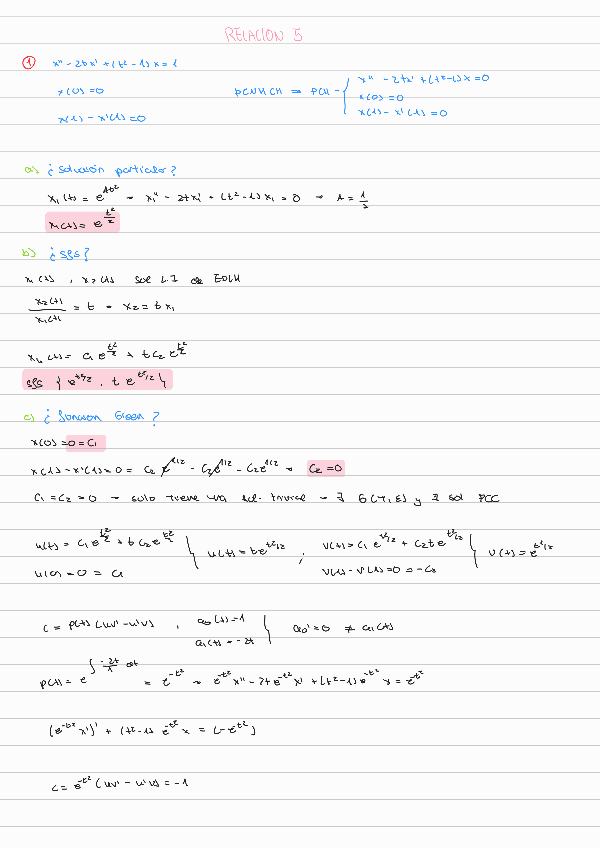 RELACION 5
① x'' - 2tx' + (t² - 1) x = 1
x(0) = 0
x(1) - x'(1) = 0
PCNHCH ⇒ PCH - { x'' - 2tx' + (t² - 1) x = 0
x(0) = 0
x(1) - x'(1) = 0
a) ¿Solución particular?
x₁(t) = e^(At²) → x₁'' - 2tx₁' + (t² - 1) x₁ = 0 → A = 1/2
x₁(t) = e^(t²/2)
b) ¿SFS?
x₁(t), x₂(t) sol L.I de EDLH
x₂(t)/x₁(t) = t → x₂ = t x₁
xₕ(t) = C₁ e^(t²/2) + t C₂ e^(t²/2)
SFS { e^(t²/2), t e^(t²/2) }
c) ¿Función Green?
x(0) = 0 = C₁
x(1) - x'(1) = 0 = C₂ e^(1/2) - C₂ e^(1/2) - C₂ e^(1/2) → C₂ = 0
C₁ = C₂ = 0 → solo tiene una sol. trivial → ∃ G(t,s) y ∃ sol PCC
u(t) = C₁ e^(t²/2) + t C₂ e^(t²/2) } u(t) = t e^(t²/2) ; v(t) = C₁ e^(t²/2) + C₂ t e^(t²/2) } v(t) = e^(t²/2)
u(0) = 0 = C₁
v(1) - v'(1) = 0 = -C₂
C = p(t) (uv' - u'v) , a₀(t) = 1
a₁(t) = -2t } a₀' = 0 ≠ a₁(t)
p(t) = e^(∫ -2t/1 dt) = e^(-t²) → e^(-t²) x'' - 2t e^(-t²) x' + (t² - 1) e^(-t²) x = e^(-t²)
(e^(-t²) x')' + (t² - 1) e^(-t²) x = (-e^(-t²))
C = e^(-t²) (uv' - u'v) = -1